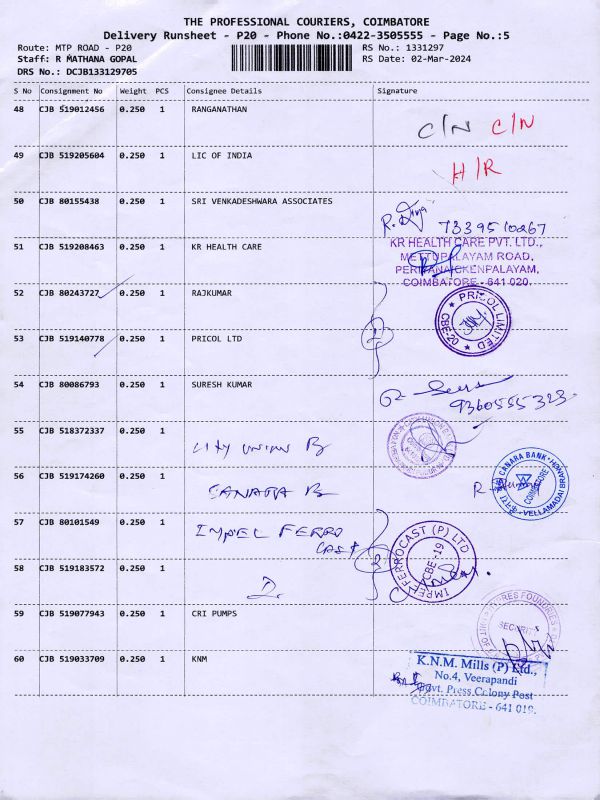 THE PROFESSIONAL COURIERS, COIMBATORE
Delivery Runsheet - P20 - Phone No.:0422-3505555 - Page No.:5
Route: MTP ROAD - P20
RS No.: 1331297
Staff: R MATHANA GOPAL
RS Date: 02-Mar-2024
DRS No.: DCJB133129705
S No Consignment No Weight PCS Consignee Details Signature
48 CJB 519012456 0.250 1 RANGANATHAN
C/N C/N
49 CJB 519205604 0.250 1 LIC OF INDIA
H/R
50 CJB 80155438 0.250 1 SRI VENKADESHWARA ASSOCIATES
7339510267
51 CJB 519208463 0.250 1 KR HEALTH CARE
KR HEALTH CARE PVT. LTD.,
METTUPALAYAM ROAD,
PERIYANAICKENPALAYAM,
COIMBATORE - 641 020.
52 CJB 80243727 0.250 1 RAJKUMAR
PRICOL LIMITED
CBE-20
53 CJB 519140778 0.250 1 PRICOL LTD
2
54 CJB 80086793 0.250 1 SURESH KUMAR
9360555323
55 CJB 518372337 0.250 1 CITY UNION B
56 CJB 519174260 0.250 1 CANARA B
CANARA BANK
COIMBATORE
VELLAMADAI BRANCH
57 CJB 80101549 0.250 1 IMPEL FERRO
CAST
FERROCAST (P) LTD
CBE-19
58 CJB 519183572 0.250 1
2
59 CJB 519077943 0.250 1 CRI PUMPS
FOUNDRIES
SECURITY
60 CJB 519033709 0.250 1 KNM
K.N.M. Mills (P) Ltd.,
No.4, Veerapandi
Govt. Press Colony Post
COIMBATORE - 641 019.